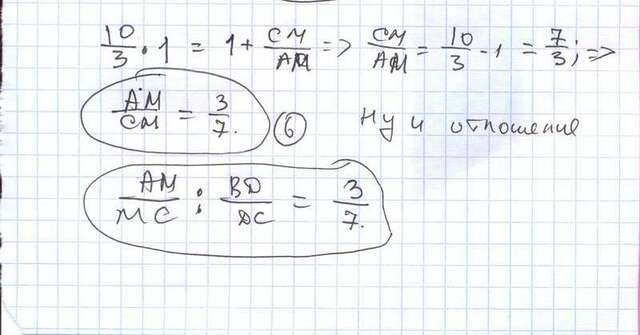 10/3 · 1 = 1 + CM/AM => CM/AM = 10/3 - 1 = 7/3; =>
AM/CM = 3/7. ⑥ Ну и отношение
AM/MC : BD/DC = 3/7.